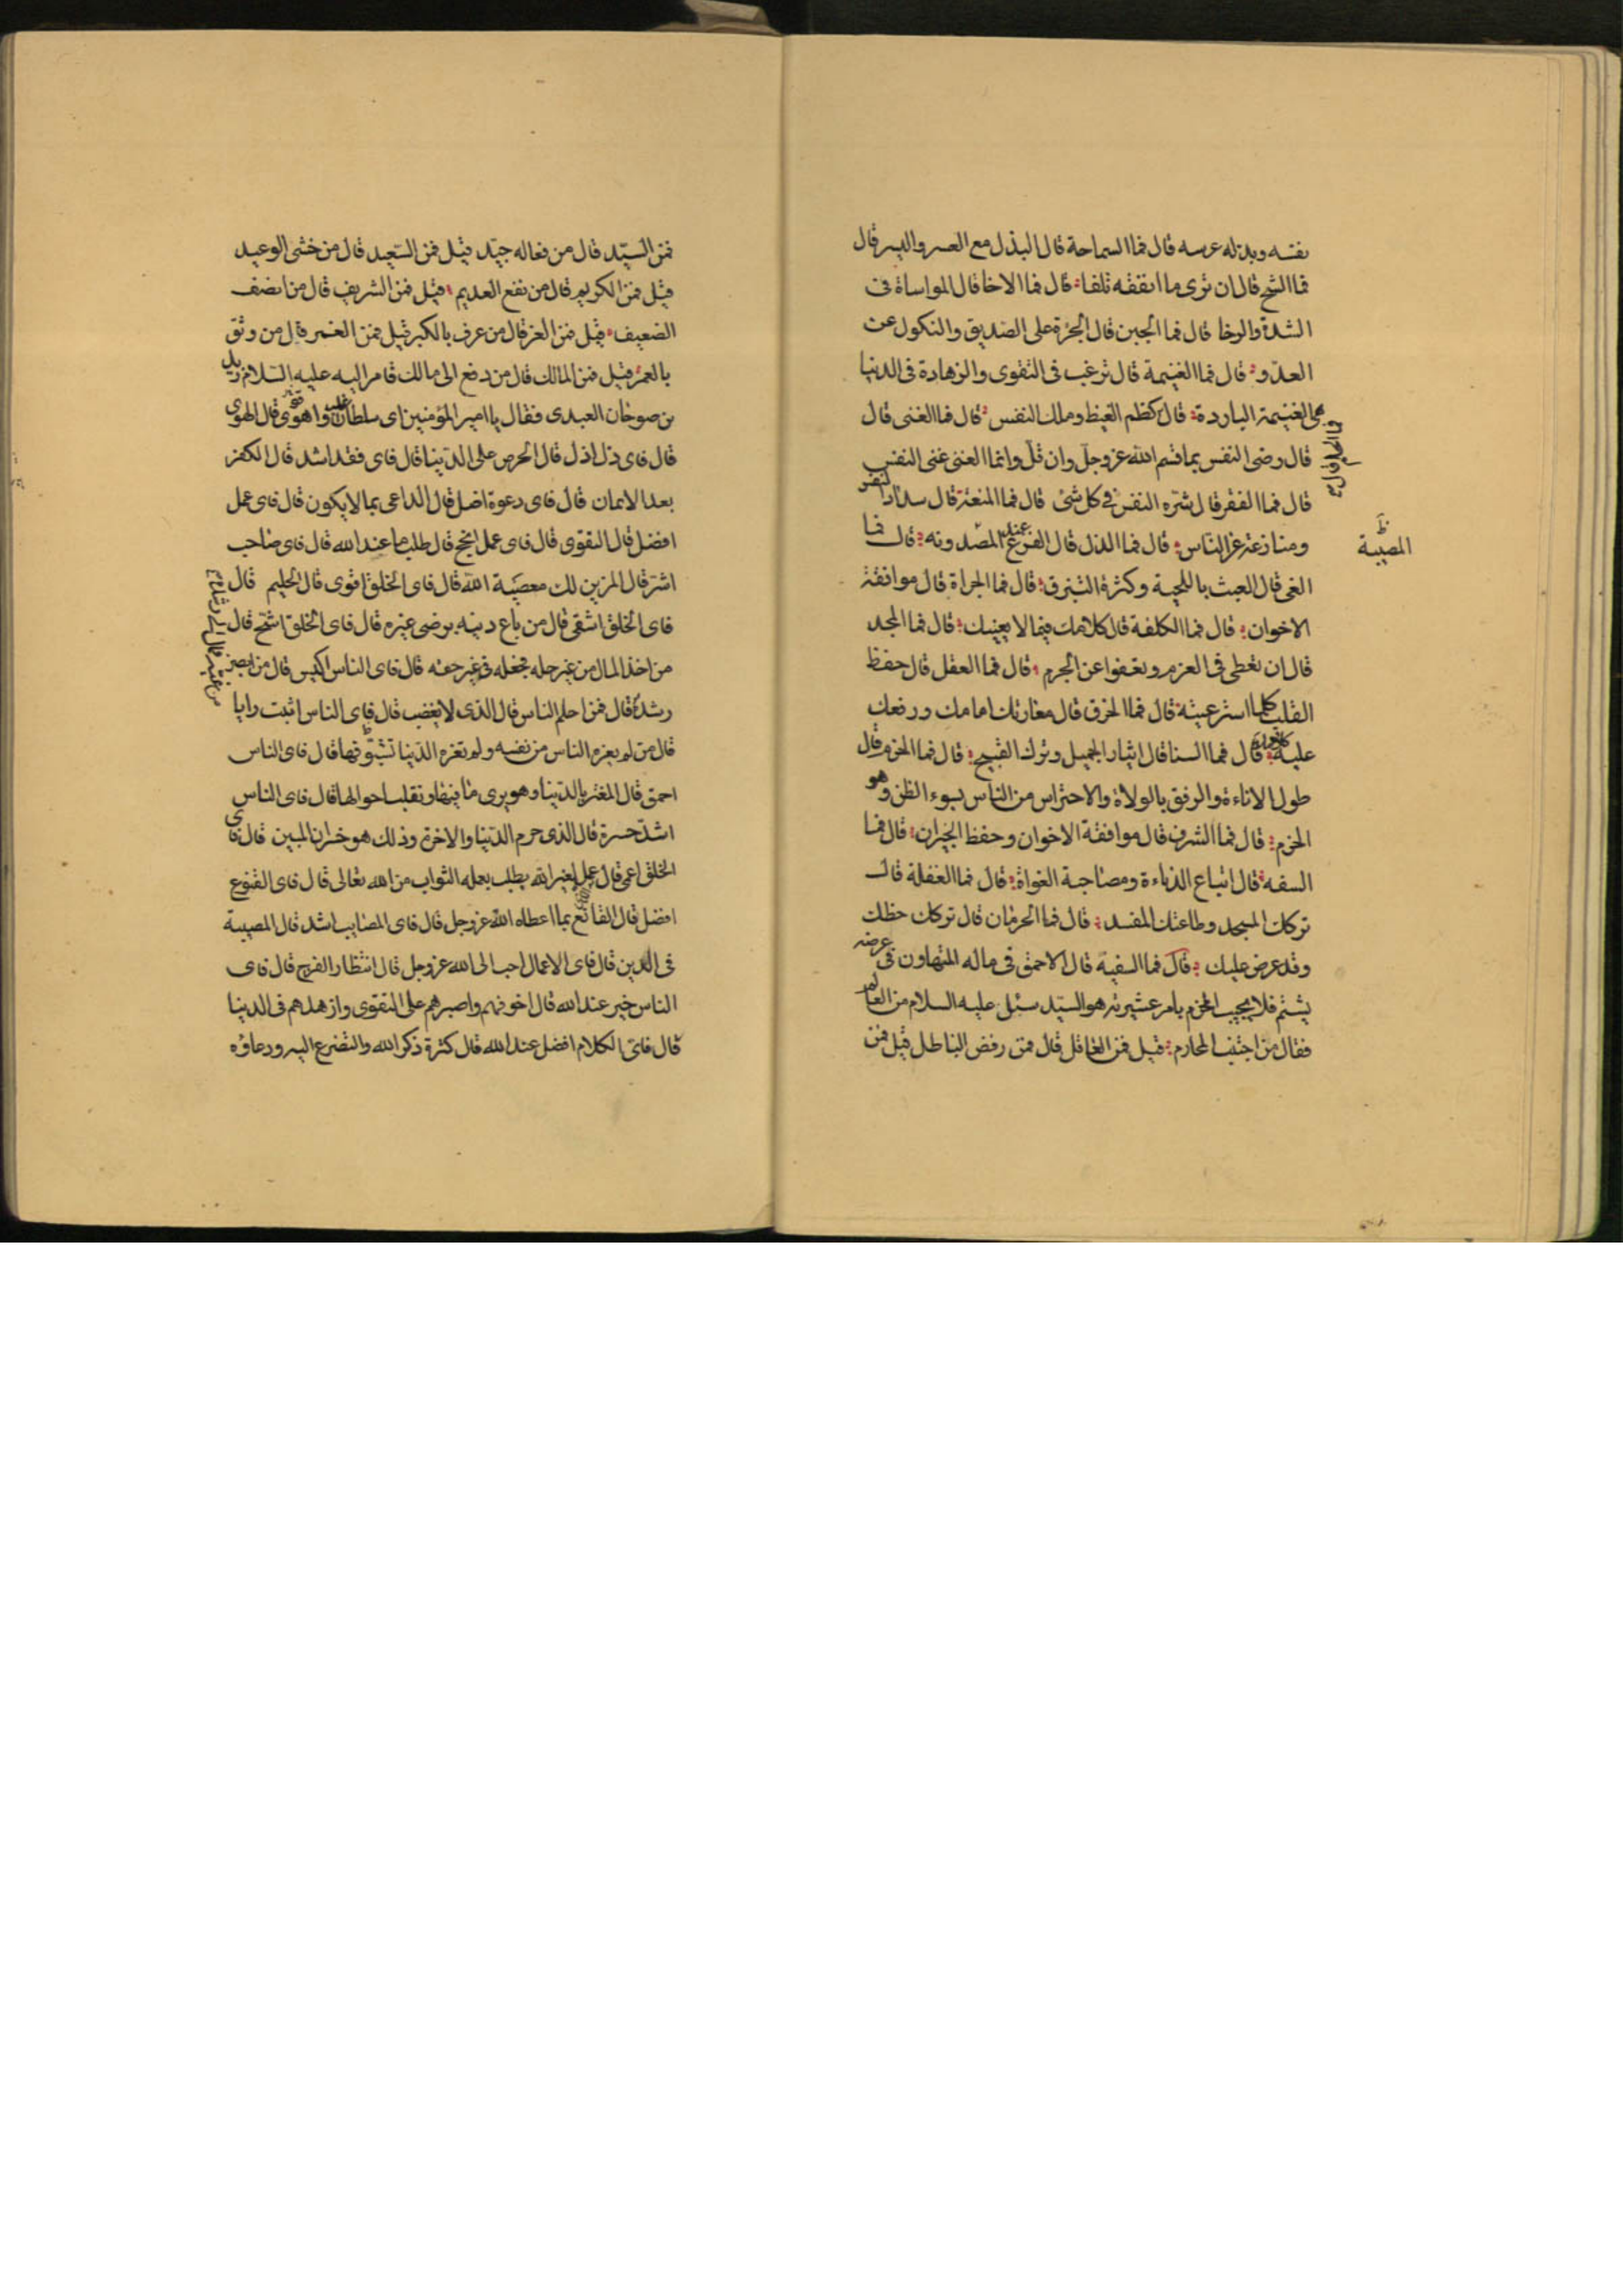 نفسه وبذله عرسه قال فما السماحة قال البذل مع العسر واليسر قال
فما الشح قال ان ترى ما انفقته تلفا قال فما الاخا قال المواساة فى
الشدة والرخا قال فما الجبن قال الجرءة على الصديق والنكول عن
العدو قال فما الغنيمة قال ترغب فى التقوى والزهادة فى الدنيا
هى الغنيمة الباردة قال كظم الغيظ وملك النفس قال فما الغنى قال
قال رضى النفس بما قسم الله عز وجل وان قل وانما الغنى غنى النفس
قال فما الفقر قال شره النفس فى كل شئ قال فما المنعة قال
ومنازعة عز الناس قال فما الذل قال الفزع عند المصدوقه قال فما
المصيبة
الغى قال العبث باللحية وكثرة التبزق قال فما الجراة قال موافقة
الاخوان قال فما الكلفة قال كلامك فيما لا يعنيك قال فما المجد
قال ان تعطى فى العزم وتعفوا عن الجرم قال فما العقل قال حفظ
القلب كلما استرعيته قال فما الخرق قال معازتك امامك ورفعك
عليه كلامك قال فما السنا قال اتيان الجميل وترك القبيح قال فما الحزم قال
طول الاناءة والرفق بالولاة والاحتراس من الناس بسوء الظن وهو
الحزم قال فما الشرف قال موافقة الاخوان وحفظ الجيران قال فما
السفه قال اتباع الدناءة ومصاحبة الغواة قال فما الغفلة قال
تركك المسجد وطاعتك المفسد قال فما الحرمان قال تركك حظك
وقد عرض عليك قال فما السفيه قال الاحمق فى ماله المتهاون فى عرضه
يشتم فلا يجيب المحزم بامر عشيرته هو السيد سئل عليه السلام من العالم
فقال من اجتنب المحارم قيل فمن العاقل قال من رفض الباطل قيل فمن
فمن السيد قال من فعاله جيد قيل فمن السعيد قال من خشى الوعيد
قيل فمن الكريم قال من نفع العديم قيل فمن الشريف قال من انصف
الضعيف قيل فمن الغر قال من عرف بالكبر قيل فمن الغمر قال من وثق
بالعمر قيل فمن الهالك قال من دفع الى مالك قام اليه عليه السلام زيد
بن صوحان العبدى فقال يا امير المؤمنين اى سلطان اغلب واقوى قال الهوى
قال فاى ذل اذل قال الحرص على الدنيا قال فاى فقد اشد قال الكفر
بعد الايمان قال فاى دعوة اضل قال الداعى بما لا يكون قال فاى عمل
افضل قال التقوى قال فاى عمل انجح قال طلب ما عند الله قال فاى صاحب
اشر قال المزين لك معصية الله قال فاى الخلق اقوى قال الحليم قال
فاى الخلق اشقى قال من باع دينه برضى غيره قال فاى الخلق اشح قال
من اخذ المال من غير حله فجعله فى غير حقه قال فاى الناس اكيس قال من ابصر
رشده قال فمن احلم الناس قال الذى لا يغضب قال فاى الناس اثبت رايا
قال من لم يغره الناس من نفسه ولم تغره الدنيا بتشوقها قال فاى الناس
احمق قال المغتر بالدنيا وهو يرى ما فيها وتقلب احوالها قال فاى الناس
اشد حسرة قال الذى حرم الدنيا والاخرة وذلك هو خسران المبين قال فاى
الخلق اعمى قال عمل لغير الله يطلب بعمله الثواب من الله تعالى قال فاى القنوع
افضل قال القانع بما اعطاه الله عز وجل قال فاى المصايب اشد قال المصيبة
فى الدين قال فاى الاعمال احب الى الله عز وجل قال انتظار الفرج قال فاى
الناس خير عند الله قال اخوفهم واصبرهم على التقوى وازهدهم فى الدنيا
قال فاى الكلام افضل عند الله قال كثرة ذكر الله والتضرع اليه ودعاؤه